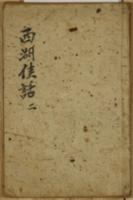 西湖佳話 二